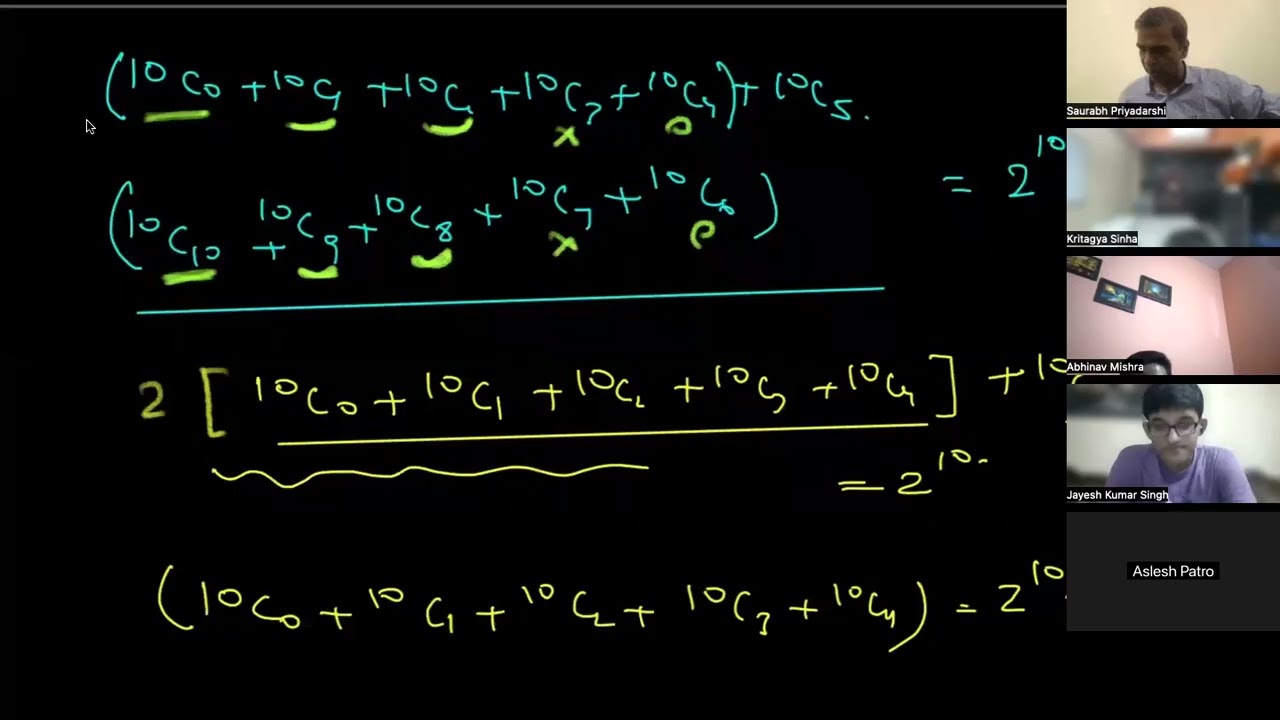 (¹⁰C₀ + ¹⁰C₁ + ¹⁰C₂ + ¹⁰C₃ + ¹⁰C₄) + ¹⁰C₅.
= 2¹⁰
(¹⁰C₁₀ + ¹⁰C₉ + ¹⁰C₈ + ¹⁰C₇ + ¹⁰C₆)
2 [¹⁰C₀ + ¹⁰C₁ + ¹⁰C₂ + ¹⁰C₃ + ¹⁰C₄] + 10
= 2¹⁰.
(¹⁰C₀ + ¹⁰C₁ + ¹⁰C₂ + ¹⁰C₃ + ¹⁰C₄) = 2¹⁰
Saurabh Priyadarshi
Kritagya Sinha
Abhinav Mishra
Jayesh Kumar Singh
Aslesh Patro